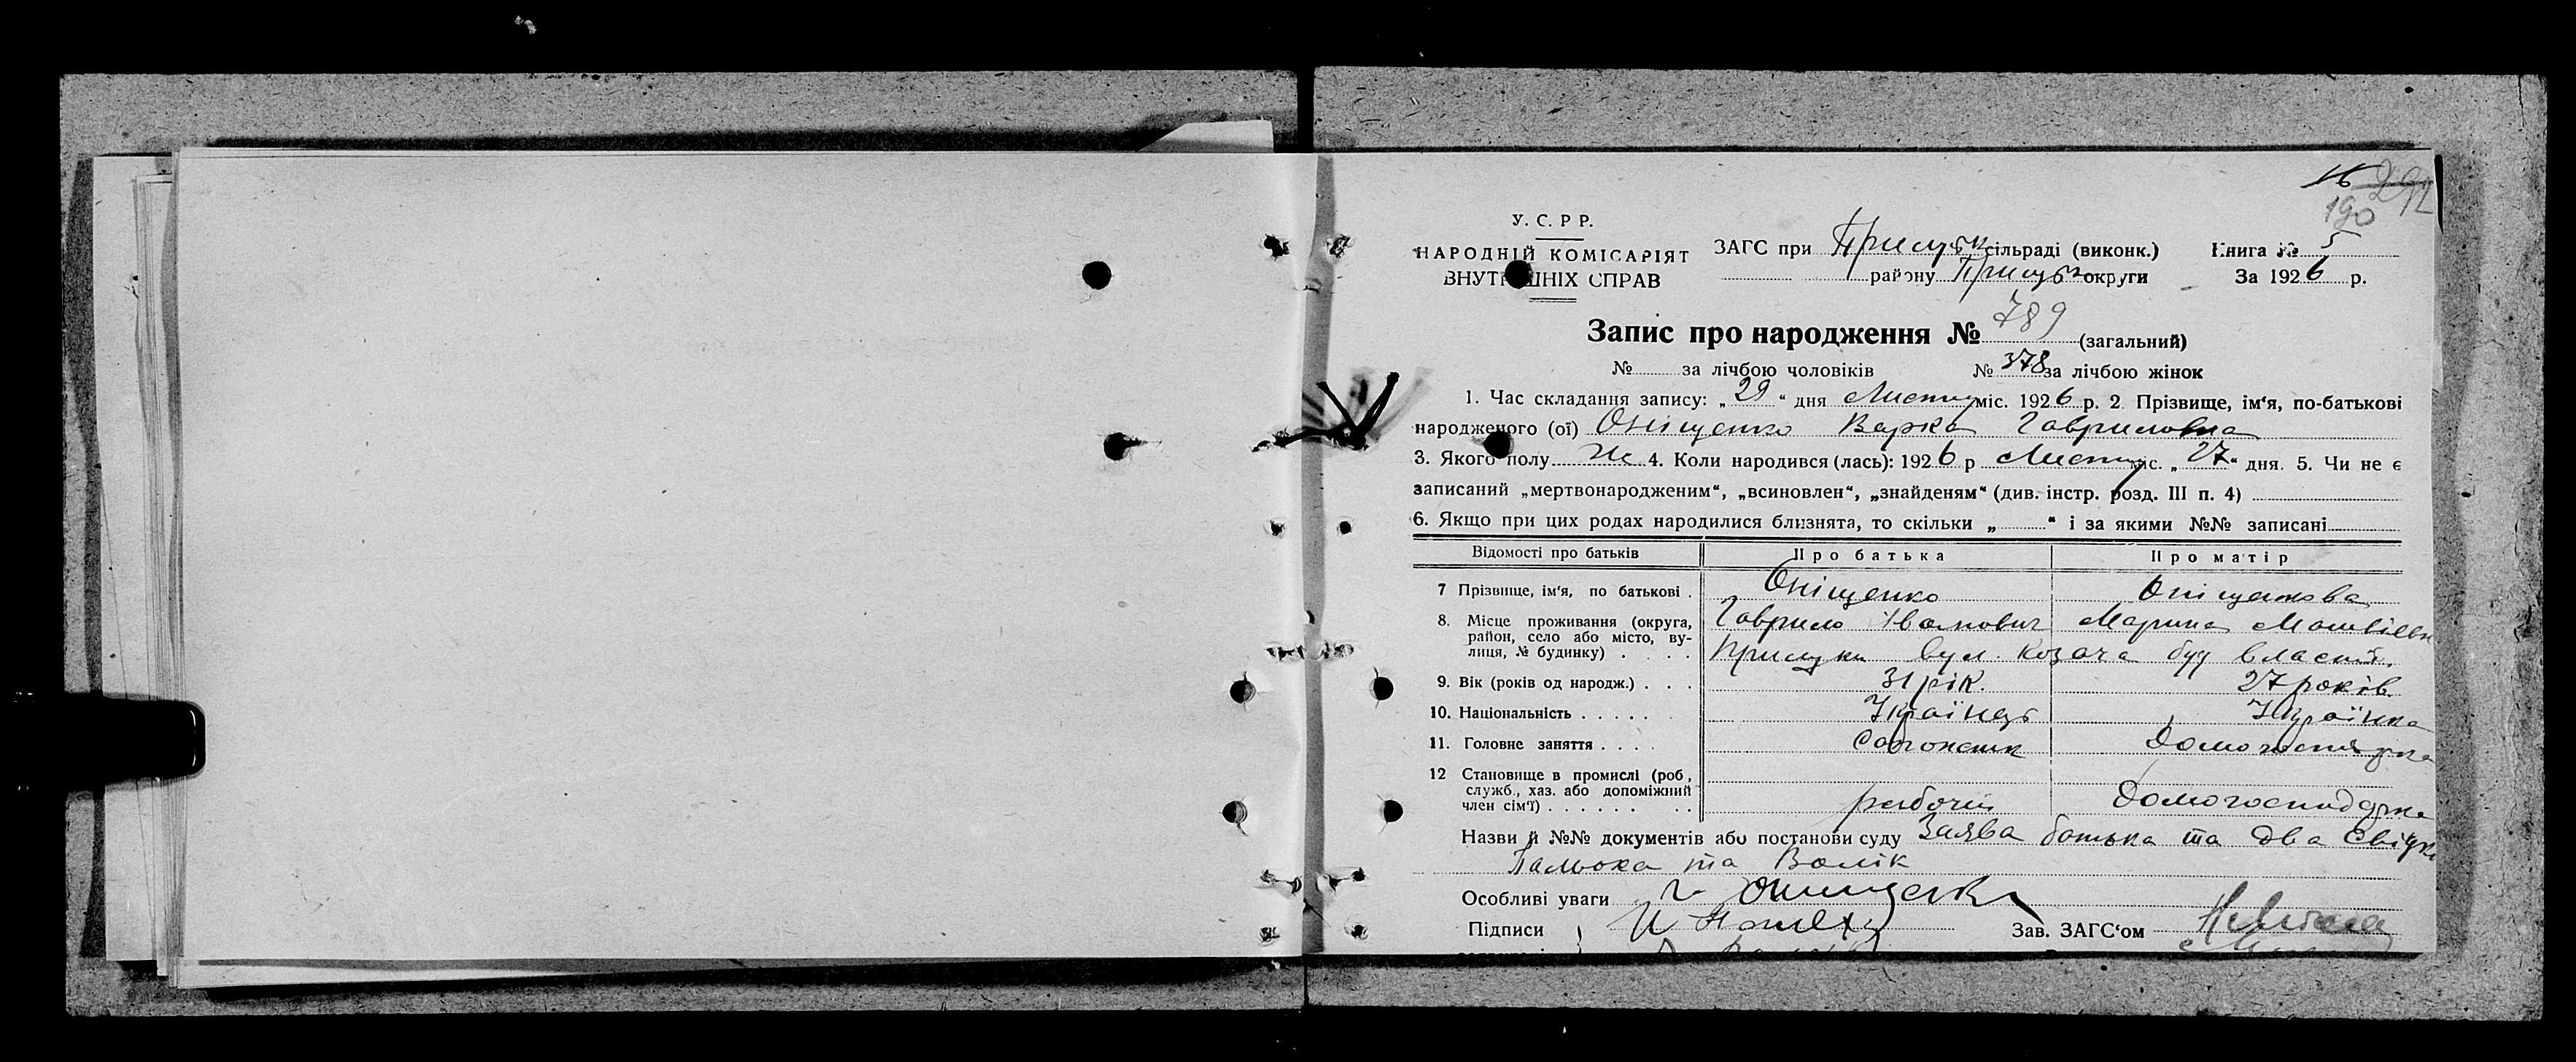 292
190
У. С. Р Р.
НАРОДНІЙ КОМІСАРІЯТ
ВНУТРІШНІХ СПРАВ
ЗАГС при Прилуцьк сільраді (виконк.) Книга № 5
району Прилуцьк округи За 1926 р.
Запис про народження № 789 (загальний)
№ за лічбою чоловіків № 378 за лічбою жінок
1. Час складання запису: „29“ дня Листоп міс. 1926 р. 2 Прізвище, ім‘я, по-батькові
народженого (ої) Оніщенко Варка Гавриловна
3. Якого полу Ж 4. Коли народився (лась): 1926 р Листоп міс. „27“ дня. 5. Чи не є
записаний „мертвонародженим“, „всиновлен“, „знайденям“ (див. інстр. розд. III п. 4)
6. Якщо при цих родах народилися близнята, то скільки „ “ і за якими №№ записані
Відомості про батьків Про батька Про матір
7 Прізвище, ім‘я, по батькові . Оніщенко Оніщенкова
8. Місце проживання (округа, Гаврило Іванович Марина Матвіевн
район, село або місто, ву-
лиця, № будинку) . . . . Прилуки вул. Козача буд власний.
9. Вік (років од народж.) . . . 31 рік. 27 років.
10. Національність . . . . . Українець Українка
11. Головне заняття . . . . Домогосподарка
12 Становище в промислі (роб,
служб., хаз. або допоміжний
член сім‘ї) . . . . . . . . рабочий Домогосподарка
Назви й №№ документів або постанови суду Заява батька та два свідки
та Волік
Особливі уваги Г Онищенко
Підписи } Зав. ЗАГС‘ом